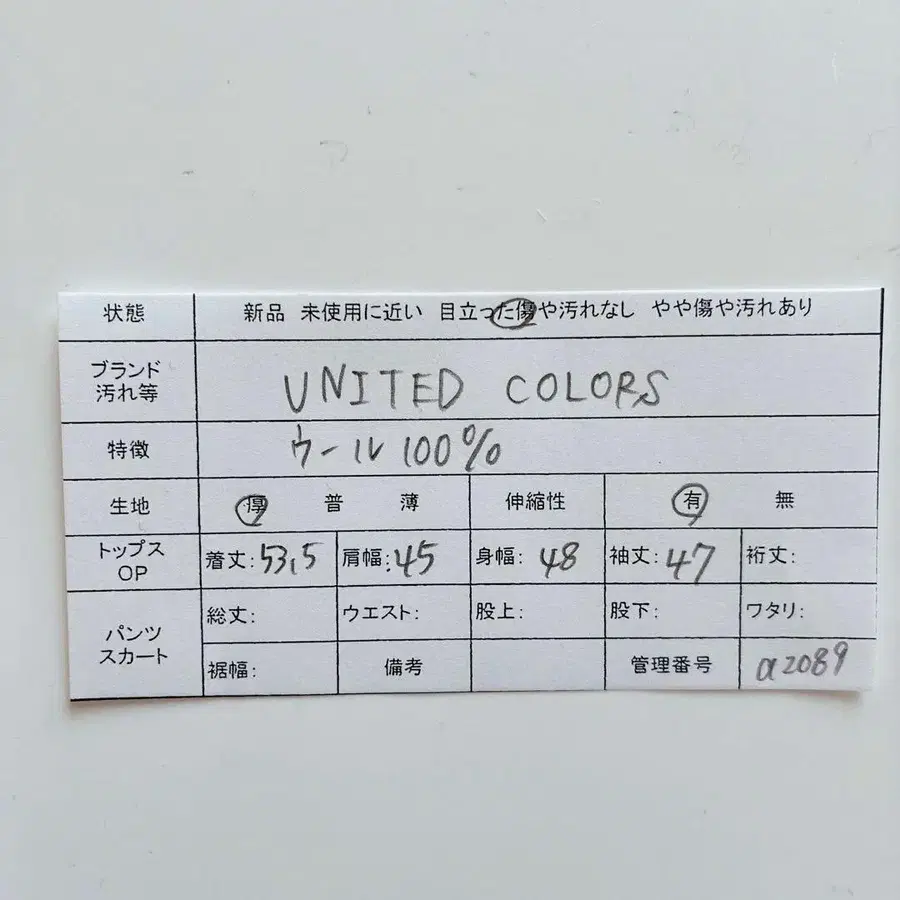 状態 新品 未使用に近い 目立った傷や汚れなし やや傷や汚れあり
ブランド
汚れ等
UNITED COLORS
特徴 ウール100%
生地 厚 普 薄 伸縮性 有 無
トップス
OP
着丈:53,5 肩幅:45 身幅:48 袖丈:47 裄丈:
パンツ
スカート
総丈: ウエスト: 股上: 股下: ワタリ:
裾幅: 備考 管理番号 a2089